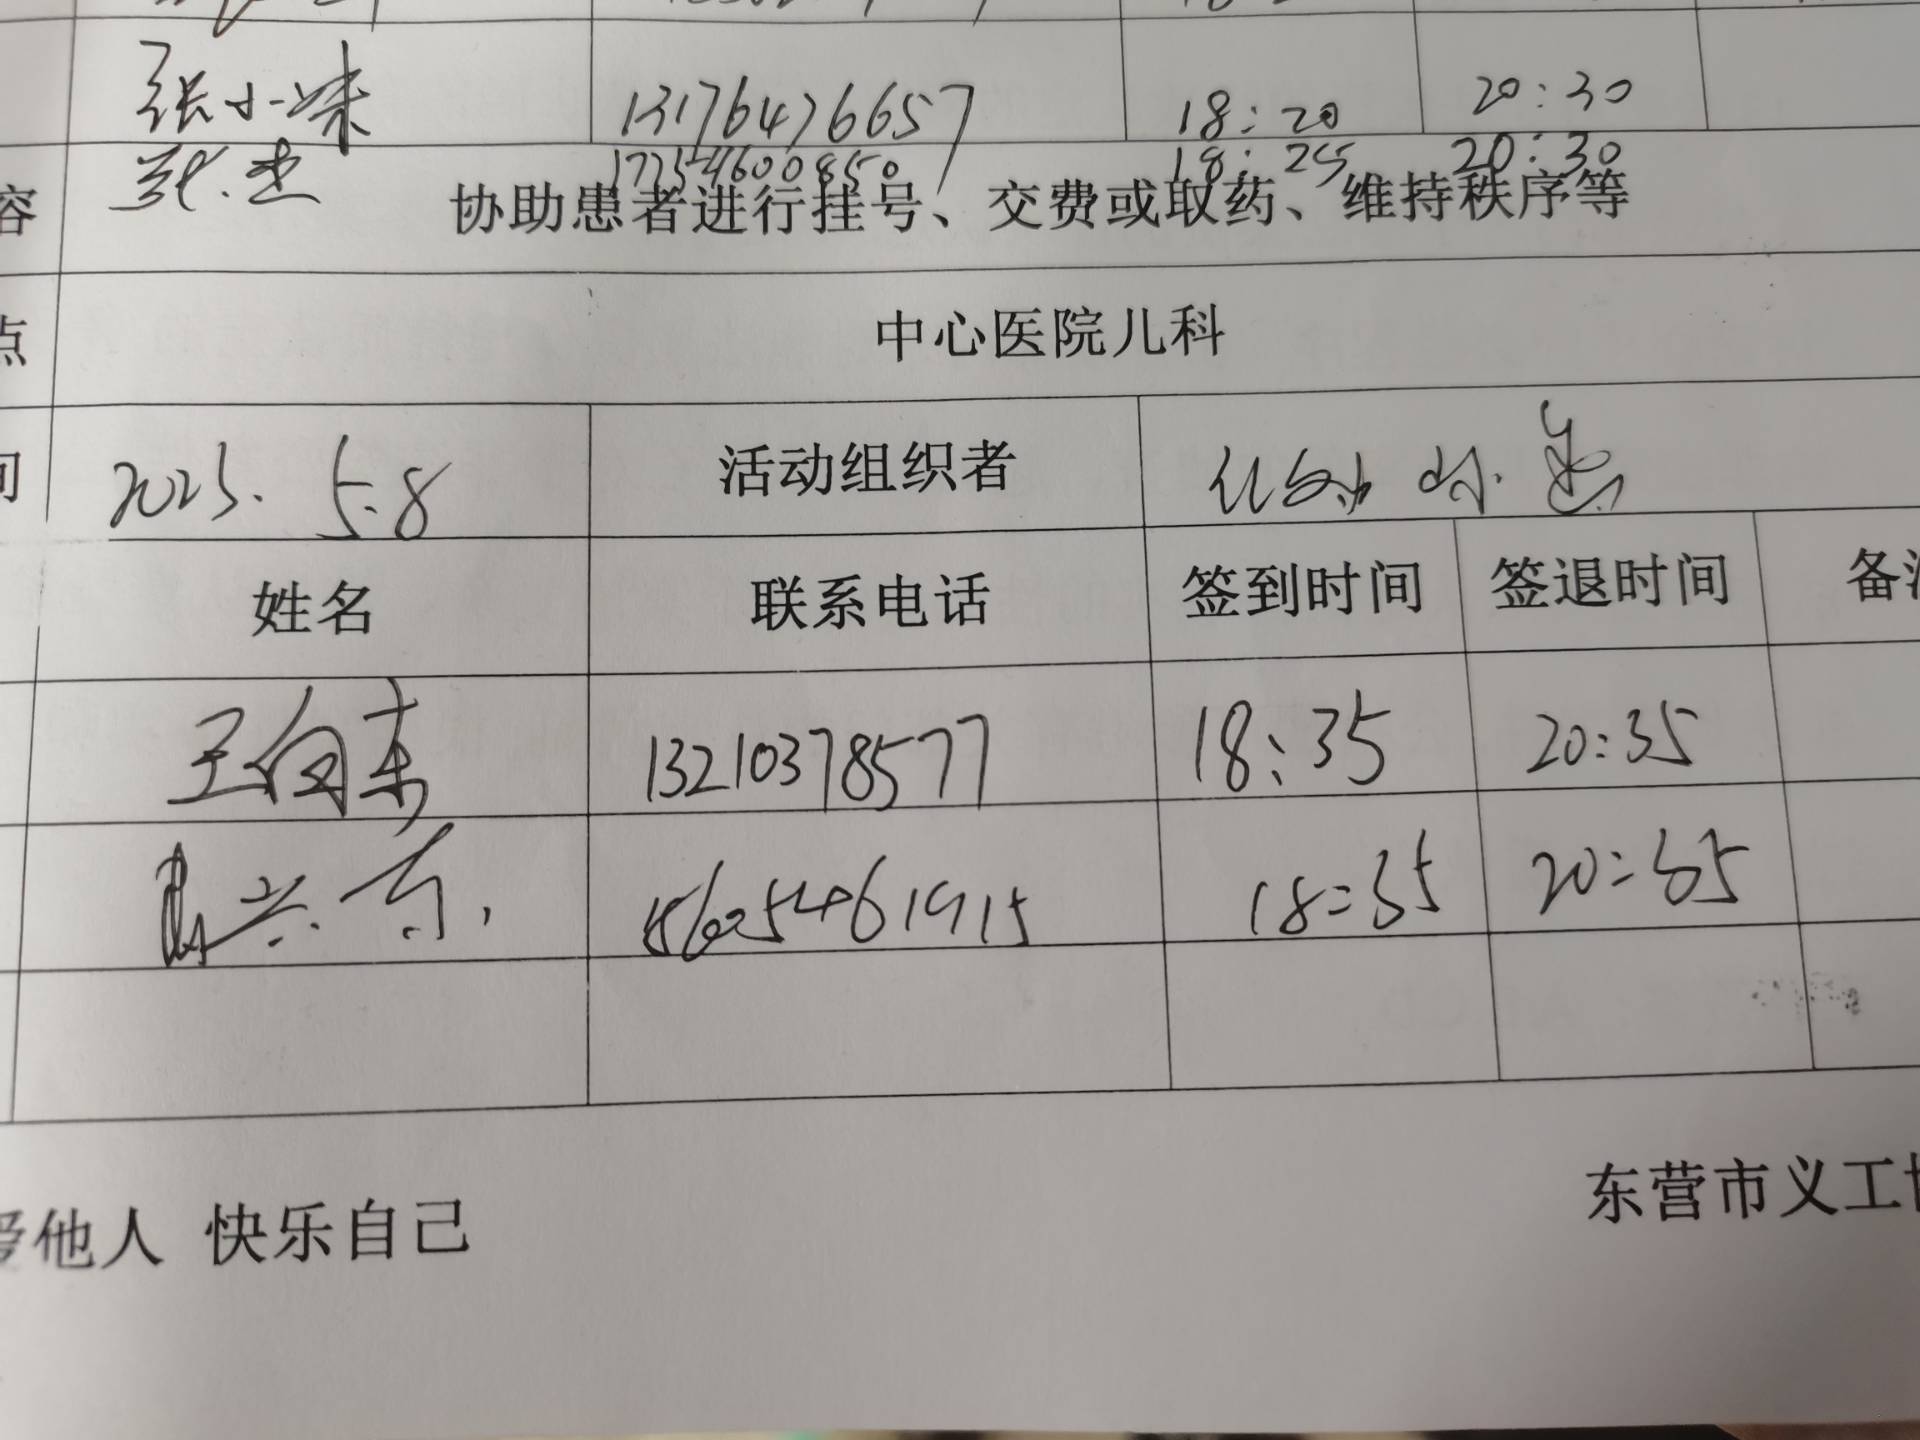 张小妹 13176476657 18:20 20:30
17754600850 18:25 20:30
容 协助患者进行挂号、交费或取药、维持秩序等
点 中心医院儿科
间 2023. 5.8 活动组织者
姓名 联系电话 签到时间 签退时间 备注
王向东 13210378577 18:35 20:35
15605461915 18:35 20:35
爱他人 快乐自己
东营市义工协